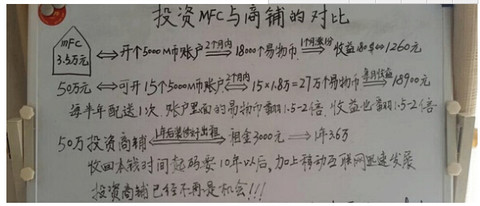 投资MFC与商铺的对比
MFC
3.5万元 ⟺ 开个5000M币账户 2个月内 18000个易物币 1个月 收益 1260元
50万元 ⟺ 可开15个5000M币账户 2个月内 15×1.8万=27万个易物币 每月收益 18900元
每半年配送1次 账户里面的易物币翻1.5-2倍, 收益也翻1.5-2倍
50万投资商铺 1年后装修好出租 租金3000元 1年3.6万
收回本钱时间起码要10年以后, 加上移动互联网迅速发展
投资商铺已经不再是机会!!!